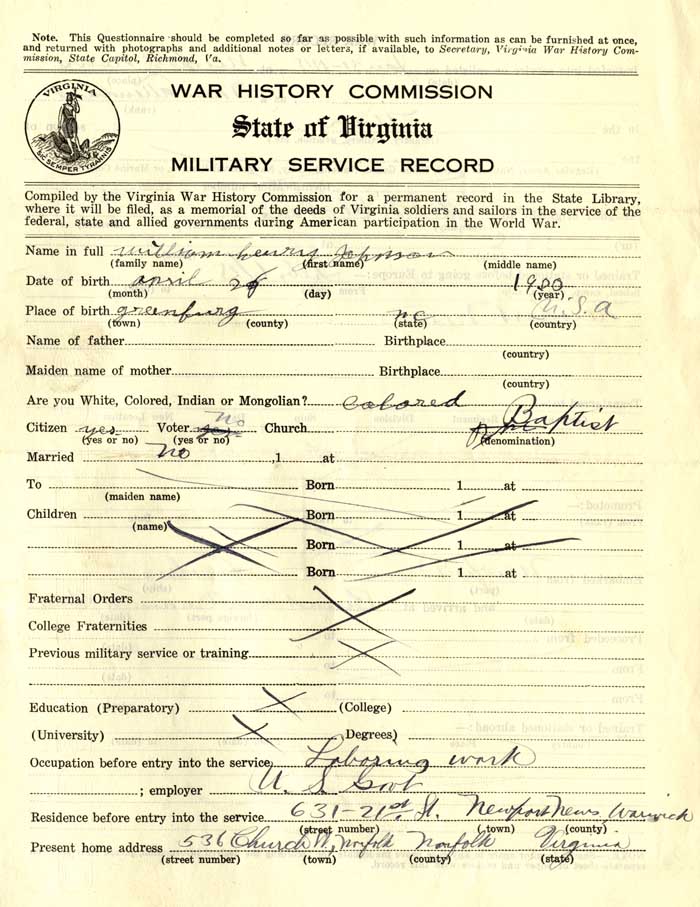 Note. This Questionnaire should be completed so far as possible with such information as can be furnished at once,
and returned with photographs and additional notes or letters, if available, to Secretary, Virginia War History Com-
mission, State Capitol, Richmond, Va.
VIRGINIA
SIC SEMPER TYRANNIS
WAR HISTORY COMMISSION
State of Virginia
MILITARY SERVICE RECORD
Compiled by the Virginia War History Commission for a permanent record in the State Library,
where it will be filed, as a memorial of the deeds of Virginia soldiers and sailors in the service of the
federal, state and allied governments during American participation in the World War.
Name in full william henry Johnson
(family name) (first name) (middle name)
Date of birth april 26
(month) (day) (year)
Place of birth greenfurg nc U.S.a
(town) (county) (state) (country)
Name of father Birthplace
(country)
Maiden name of mother Birthplace
(country)
Are you White, Colored, Indian or Mongolian? Colored
Citizen yes Voter no Church Baptist
(yes or no) (yes or no) (denomination)
Married no ,1 at
To Born 1 at
(maiden name)
Children Born 1 at
(name)
Born 1 at
Born 1 at
Fraternal Orders
College Fraternities
Previous military service or training
Education (Preparatory) (College)
(University) Degrees)
Occupation before entry into the service Laboring work
; employer U. S. Govt
Residence before entry into the service 631-21st. St. Newport News Warwick
(street number) (town) (county)
Present home address 536 Church St, Norfolk Norfolk Virginia
(street number) (town) (county) (state)